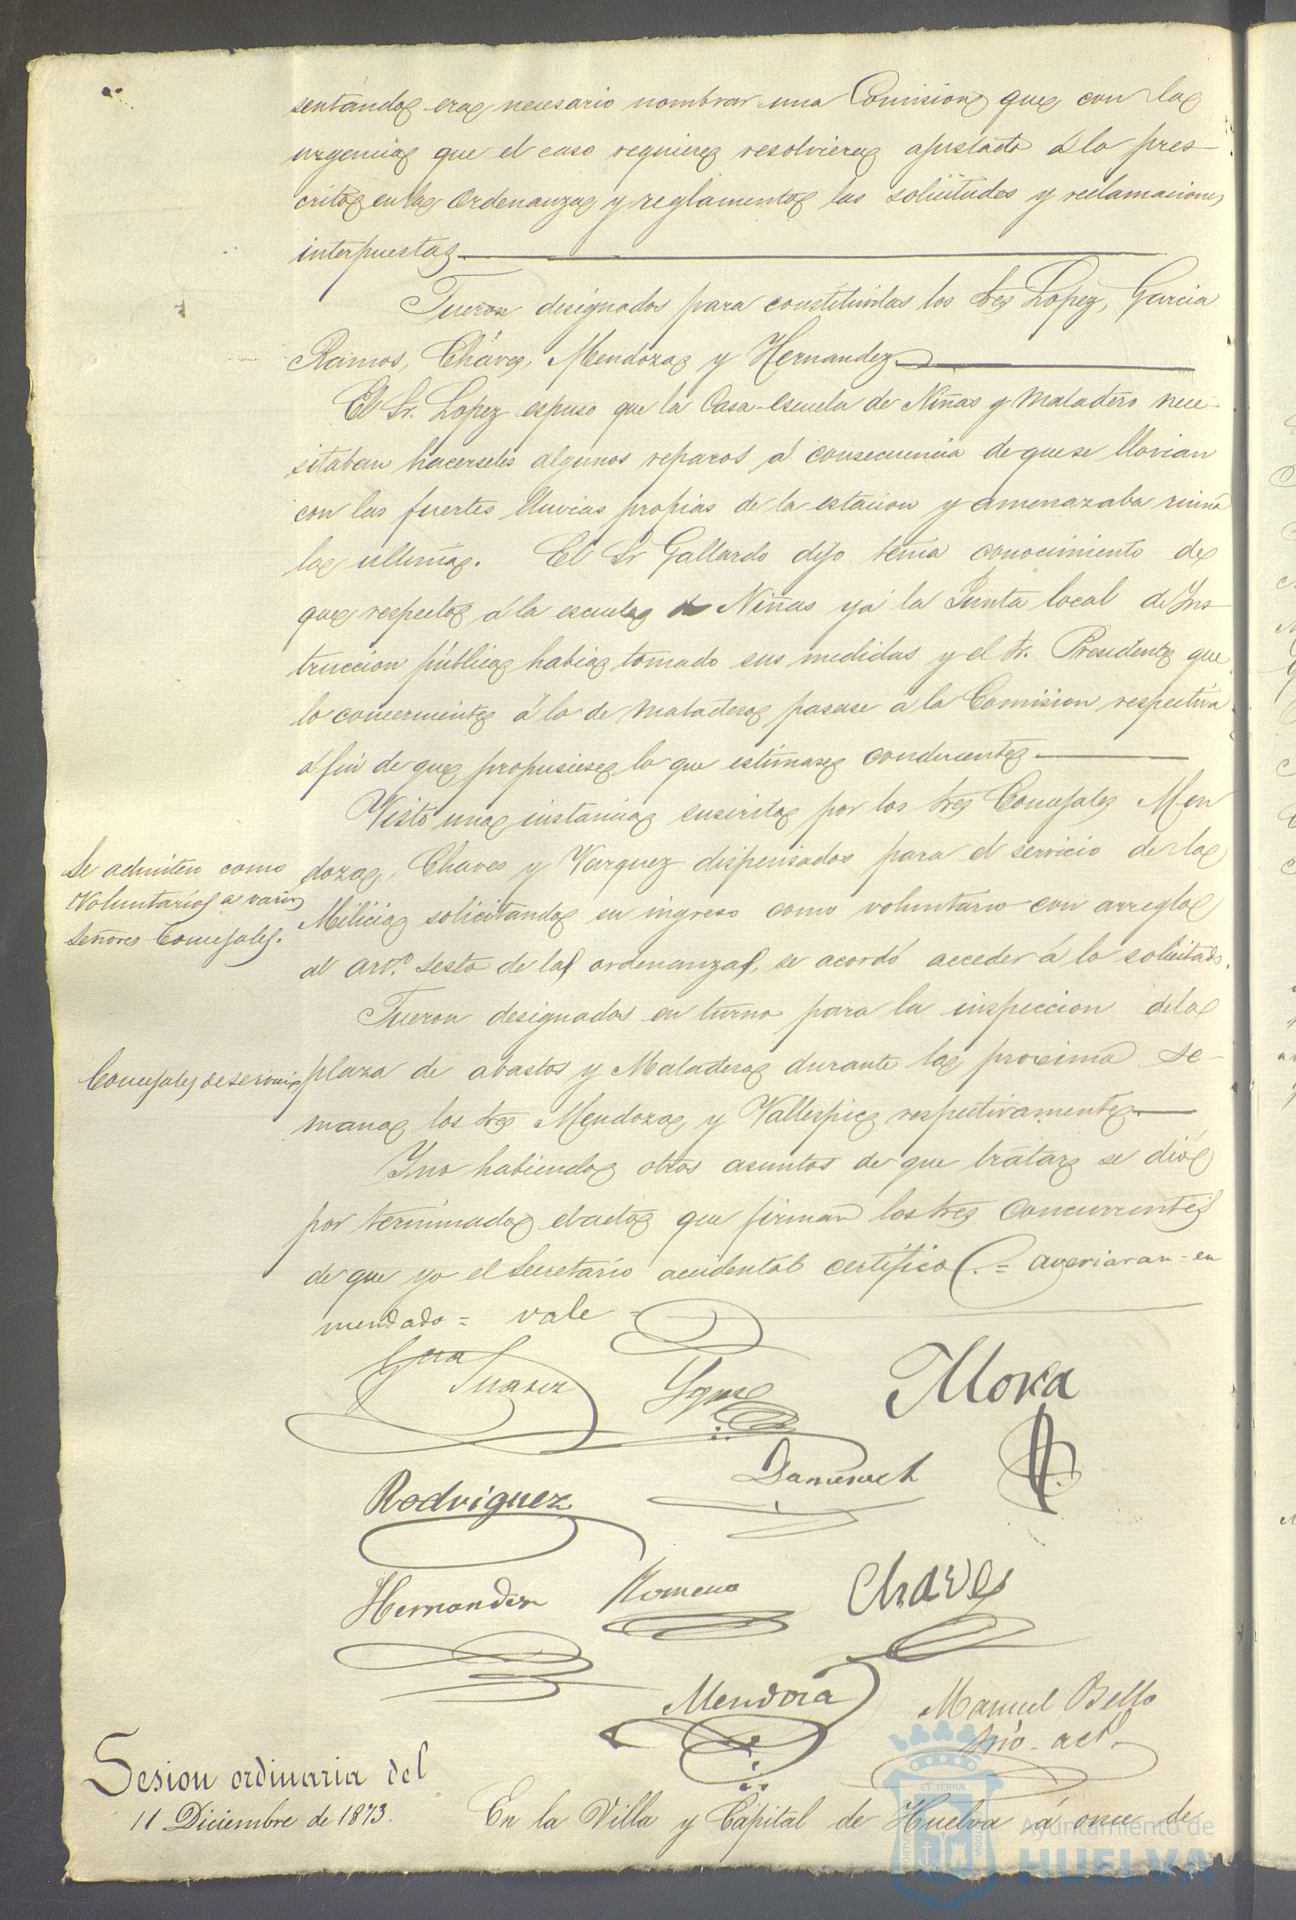 sentando era necesario nombrar una Comision que con la
urgencia que el caso requiere resolviera ajustado á lo pres-
crito en las Ordenanzas y reglamentos las solicitudes y reclamaciones
interpuestas
Fueron designados para constituirla los Sres Lopez, Garcia
Ramos, Chaves, Mendoza y Hernandez
El Sr. Lopez espuso que la Casa-Escuela de Niñas y Matadero nece-
sitaban hacerseles algunos reparos á consecuencia de que se llovian
con las fuertes lluvias propias de la estacion y amenazaba ruina
la ultima. El Sr Gallardo dijo tenia conocimiento de
que respecto á la escuela de Niñas ya la Junta local de Ins-
truccion pública habia tomado sus medidas y el Sr. Presidente que
lo concerniente á lo de Matadero pasase a la Comision respectiva
á fin de que propusiese lo que estimare conducente
Visto una instancia suscrita por los Sres Concejales Men
Se admiten como
Voluntarios a varios
Señores Concejales.
doza, Chaves y Vazquez dispensados para el servicio de la
Milicia solicitando su ingreso como voluntario con arreglo
al art.º sesto de las ordenanzas, se acordó acceder á lo solicitado.
Fueron designados en turno para la inspeccion de la
Concejales de servicio
plaza de abastos y Matadero durante la proxima se-
mana los Sres Mendoza y Vallespin respectivamente
Y no habiendo otros asuntos de que tratar se dió
por terminado el acto que firman los Sres concurrentes
de que yo el Secretario accidental certifico. = averiaran = en
mendado = vale =
Gcia
Suarez
Mora
Rodriguez
Hernandez Romero Chaves
Mendoza
Manuel Bello
Srio. acl.
Sesion ordinaria del
11 Diciembre de 1873.
En la Villa y Capital de Huelva á once de
ET TERRÆ
Ayuntamiento de
HUELVA